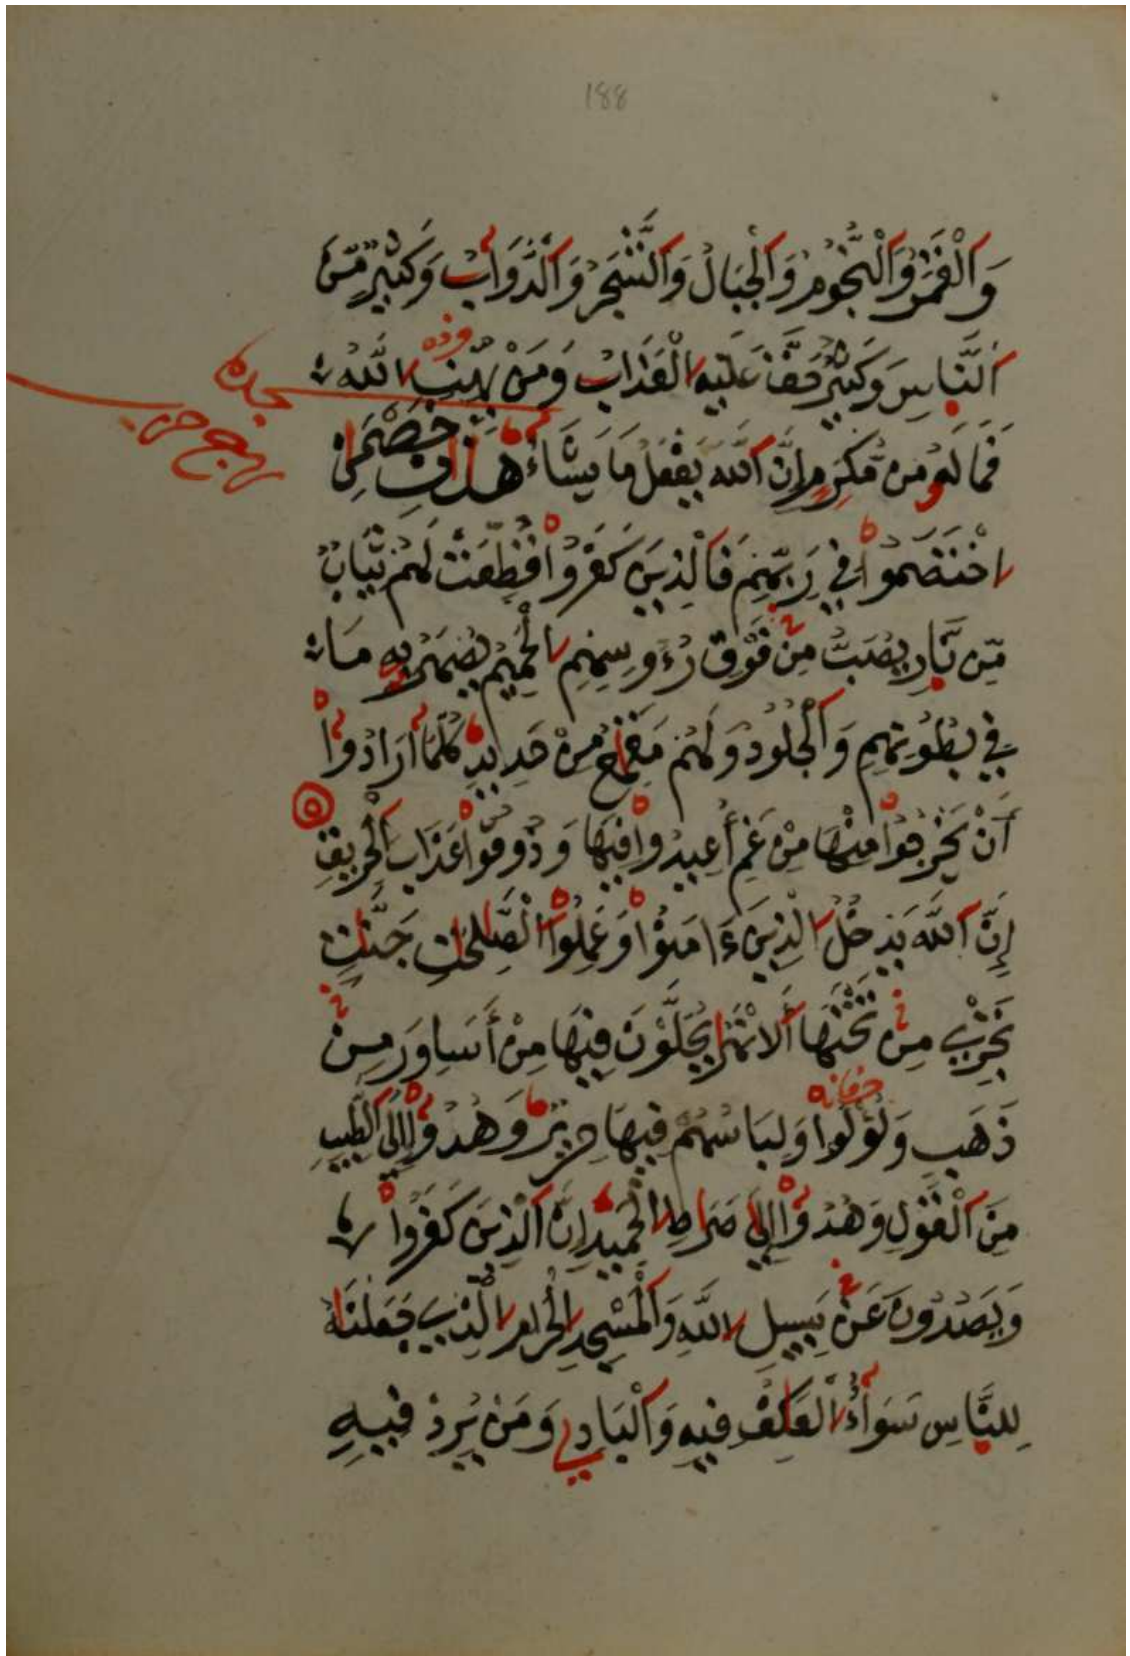 188
وَالْقَمَرُ وَالنُّجُومُ وَالْجِبَالُ وَالشَّجَرُ وَالدَّوَابُّ وَكَثِيرٌ مِّنَ
اَلنَّاسِ وَكَثِيرٌ حَقَّ عَلَيْهِ الْعَذَابُ وَمَنْ يُّهِنِ اللَّهُ
سجده
فَمَا لَهُ مِن مُّكْرِمٍ إِنَّ اللَّهَ يَفْعَلُ مَا يَشَاءُ هَٰذَانِ خَصْمَانِ
اخْتَصَمُواْ فِي رَبِّهِمْ فَالَّذِينَ كَفَرُواْ قُطِّعَتْ لَهُمْ ثِيَابٌ
مِّن نَّارٍ يُصَبُّ مِن فَوْقِ رُءُوسِهِمُ الْحَمِيمُ يُصْهَرُ بِهِ مَا
فِي بُطُونِهِمْ وَالْجُلُودُ وَلَهُم مَّقَٰمِعُ مِنْ حَدِيدٍ كُلَّمَا أَرَادُواْ
أَنْ يَخْرُجُواْ مِنْهَا مِنْ غَمٍّ أُعِيدُواْ فِيهَا وَذُوقُواْ عَذَابَ الْحَرِيقِ
إِنَّ اللَّهَ يُدْخِلُ الَّذِينَ ءَامَنُواْ وَعَمِلُواْ الصَّٰلِحَٰتِ جَنَّٰتٍ
تَجْرِي مِن تَحْتِهَا أَلَانْهَٰرُ يُحَلَّوْنَ فِيهَا مِنْ أَسَاوِرَ مِن
ذَهَبٍ وَلُؤْلُؤاً وَلِبَاسُهُمْ فِيهَا حَرِيرٌ وَهُدُواْ إِلَى الطَّيِّبِ
مِنَ الْقَوْلِ وَهُدُواْ إِلَىٰ صِرَٰطِ الْحَمِيدِ إِنَّ الَّذِينَ كَفَرُواْ
وَيَصُدُّونَ عَن سَبِيلِ اللَّهِ وَالْمَسْجِدِ الْحَرَامِ الَّذِي جَعَلْنَٰهُ
لِلنَّاسِ سَوَاءٌ الْعَٰكِفُ فِيهِ وَالْبَادِي وَمَن يُرِدْ فِيهِ